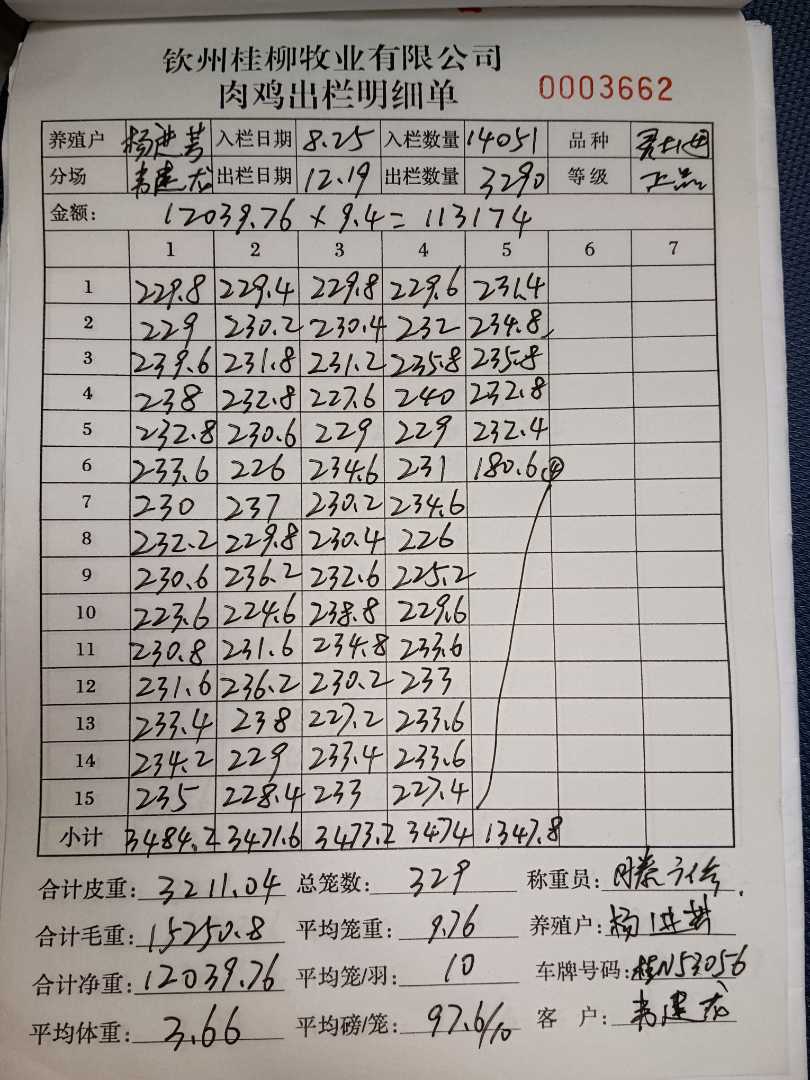 钦州桂柳牧业有限公司
肉鸡出栏明细单 0003662
养殖户 杨进芳 入栏日期 8.25 入栏数量 14051 品种
分场 韦建龙 出栏日期 12.19 出栏数量 3290 等级 正品
金额: 12039.76 × 9.4 = 113174
1 2 3 4 5 6 7
1 229.8 229.4 229.8 229.6 231.4
2 229 230.2 230.4 232 234.8
3 239.6 231.8 231.2 235.8 235.8
4 238 232.8 227.6 240 232.8
5 232.8 230.6 229 229 232.4
6 233.6 226 234.6 231 180.6 ④
7 230 237 230.2 234.6
8 232.2 229.8 230.4 226
9 230.6 236.2 232.6 225.2
10 223.6 224.6 238.8 229.6
11 230.8 231.6 234.8 233.6
12 231.6 236.2 230.2 233
13 233.4 238 227.2 233.6
14 234.2 229 233.4 233.6
15 235 228.4 233 227.4
小计 3484.2 3471.6 3473.2 3474 1347.8
合计皮重: 3211.04 总笼数: 329 称重员:
合计毛重: 15250.8 平均笼重: 9.76 养殖户: 杨进芳
合计净重: 12039.76 平均笼/羽: 10 车牌号码: 桂N53056
平均体重: 3.66 平均磅/笼: 97.6/10 客 户: 韦建龙